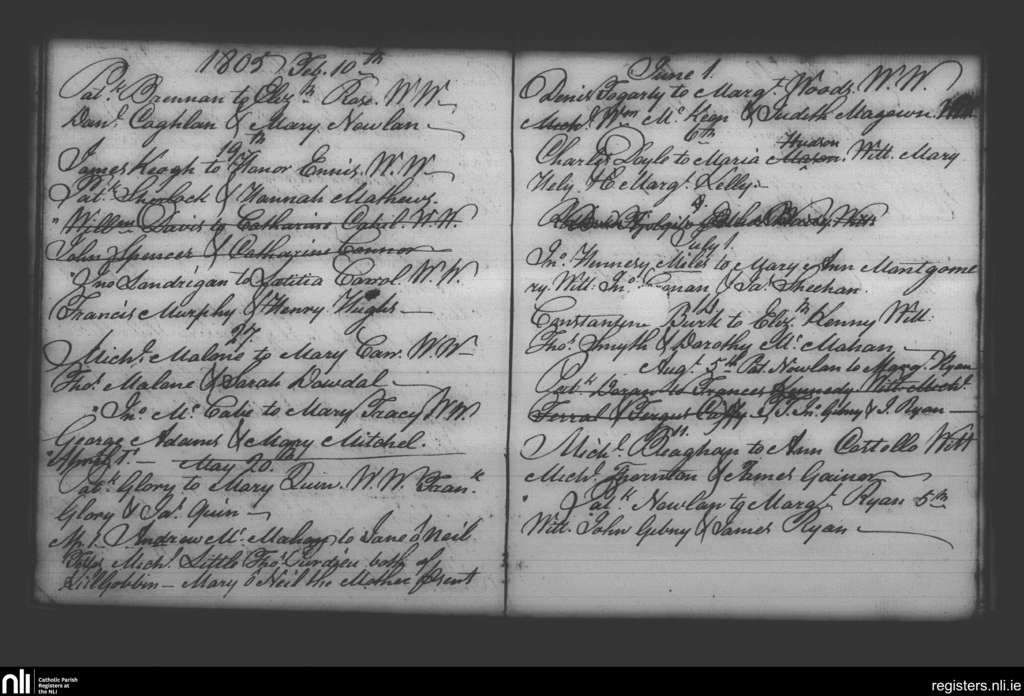 1805 Feb. 10th
Patk Brennan to Elizth Rose. W.W.
Danl Coghlan & Mary Nowlan
19th
James Keogh to Honor Ennis. W.W.
Patk Sherlock & Hannah Mathews.
" Willm Davis to Catharine Cahil. W.W.
John Spencer & Catharine Connor
" Jno Londrigan to Latitia Carrol. W.W.
Francis Murphy & Henry Hughs
27
Michl Malone to Mary Carr. W.W.
Thos Malone & Sarah Dowdal
" Jno Mc Cabe to Mary Tracy W.W.
George Adams & Mary Mitchel.
" April 1st May 20.
Patk Glory to Mary Quin. W.W. Frank
Glory & Jas Quin
Andrew Mc Mahon to Jane O'Neil
Michl Little Thos both of
Killgobbin Mary O Neil the Mother present
June 1.
Denis Fogarty to Margt Woods. W.W.
Michl Wm Mc Keon & Judith Magawn.
6th
Hudson
Charles Doyle to Maria Mason. Witt. Mary
Hely & Margt Kelly.
9.
July 1.
Jno Hennery Miles to Mary Ann Montgome
ry. Witt: Jno & Jas Sheehan.
14
Constantine Burk to Elizth Kenny Witt:
Thos Smyth & Dorothy Mc Mahan
Augt 5th Pat. Nowlan to Margt Ryan
Patk Doran to Frances Kennedy Witt Michl
Ferral & Fergus Caffry & J. Jno Gibny & J. Ryan
11.
Michl to Ann Costollo Witt
Michl Thornton & James Gainor
" Patk Nowlan to Margt Ryan 5th
Witt. John Gibny & James Ryan
nli
Catholic Parish
Registers at
the NLI
registers.nli.ie